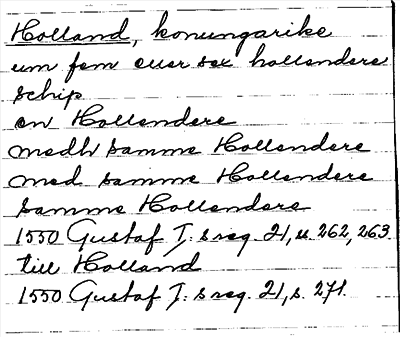 Holland, konungarike
um fem eller sex hollendere
schip
en Hollendere
medh samme Hollendere
med samme Hollendere
samme Hollendere
1550 Gustaf I: s reg. 21, s. 262, 263.
till Holland
1550 Gustaf I: s reg. 21, s. 271.